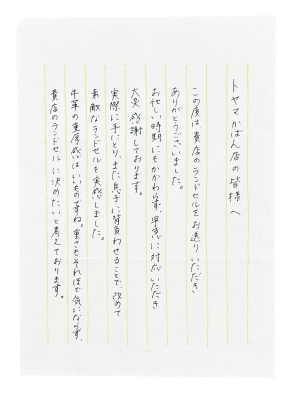 トヤマかばん店の皆様へ
この度は、貴店のランドセルをお送りいただき
ありがとうございました。
お忙しい時期にもかかわらず、早急に対応いただき
大変感謝しております。
実際に手にとり、また息子に背負わせることで、改めて
素敵なランドセルを実感しました。
牛革の重厚感はいいものですね。重さもそれほど気にならず、
貴店のランドセルに決めたいと考えております。